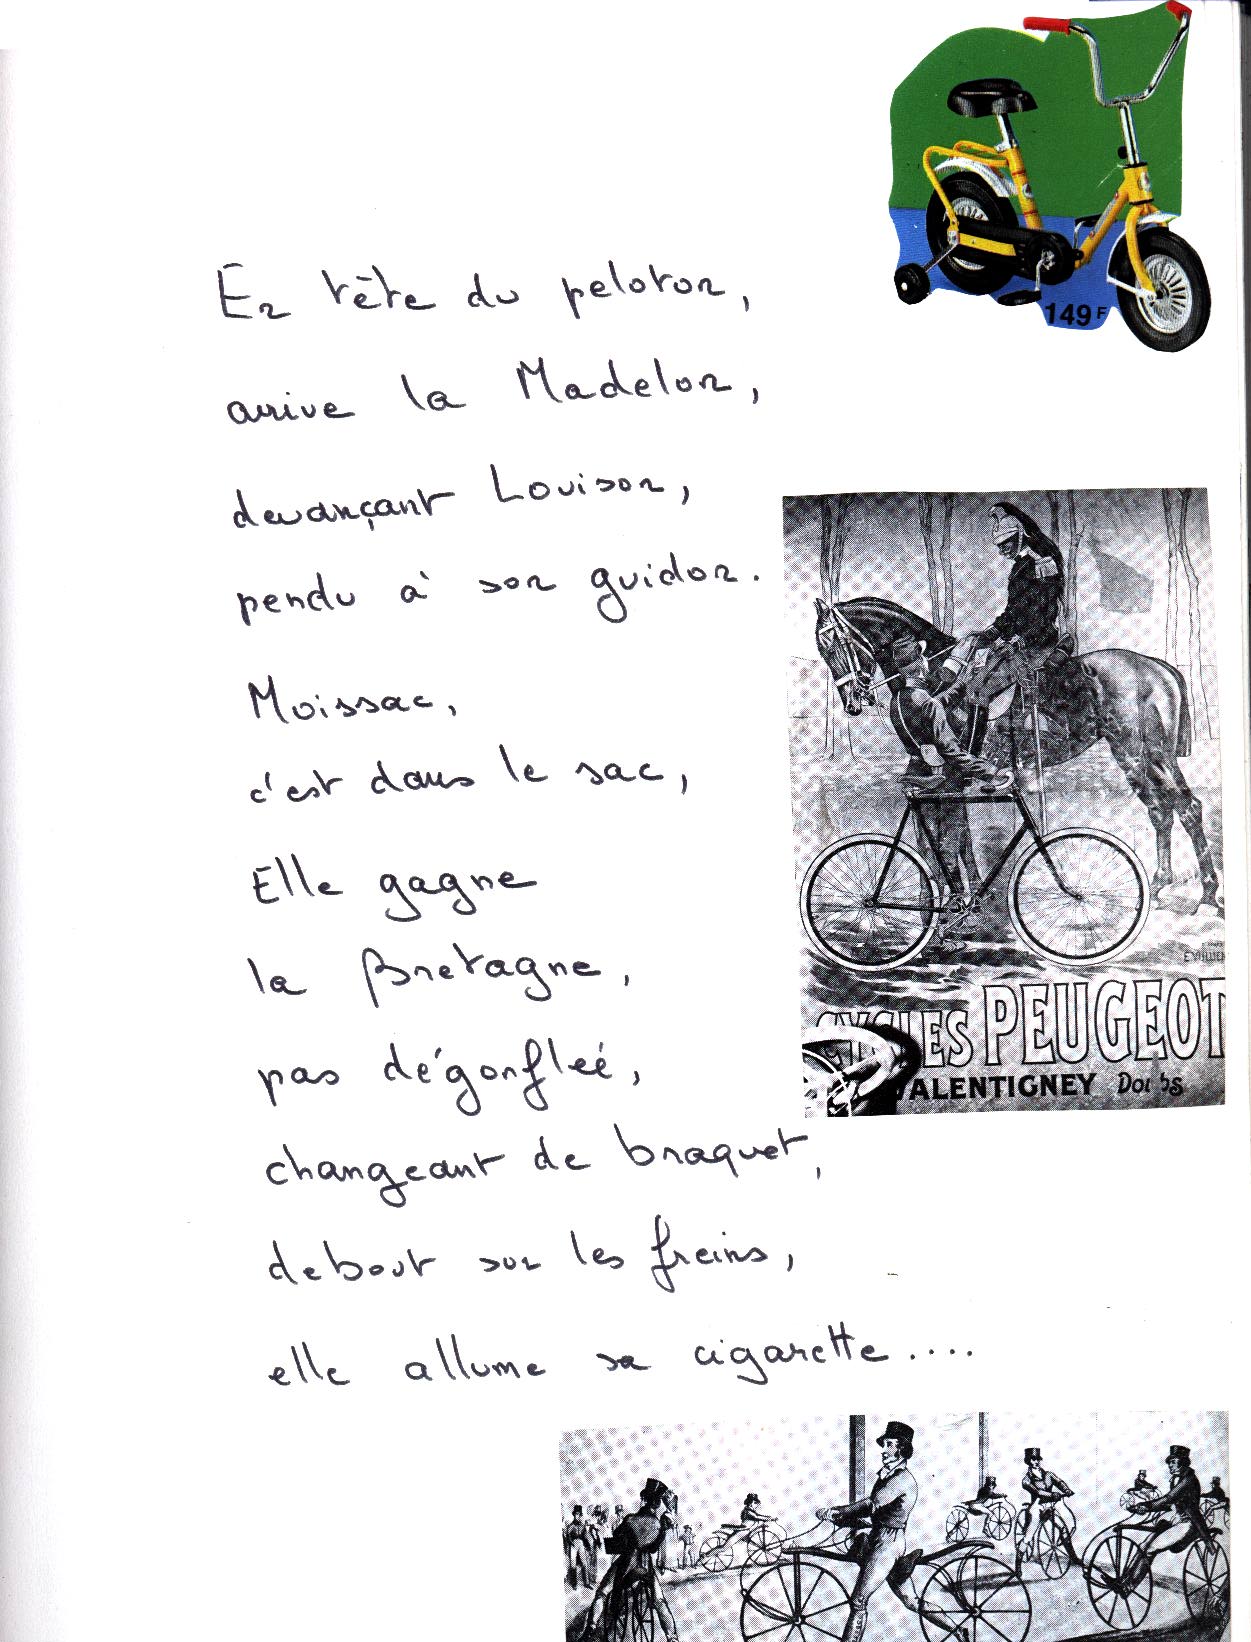 149 F
En tête du peloton,
arrive la Madelon,
devançant Louison,
pendu à son guidon.
Moissac,
c'est dans le sac,
Elle gagne
la Bretagne,
pas dégonfleé,
changeant de braquet,
debout sur les freins,
elle allume sa cigarette....
CYCLES PEUGEOT
VALENTIGNEY